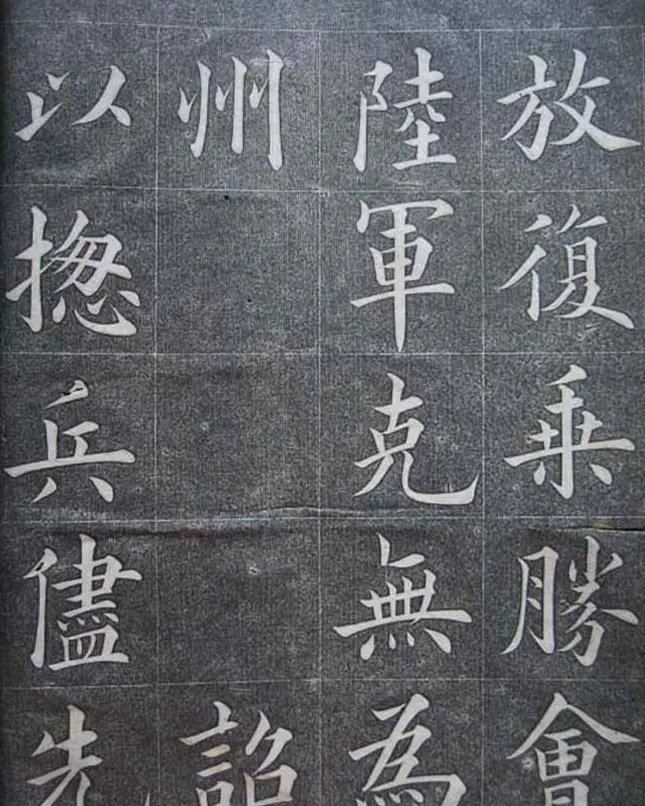 放復乗勝會
陸軍克無為
州詔
以揔兵儘先